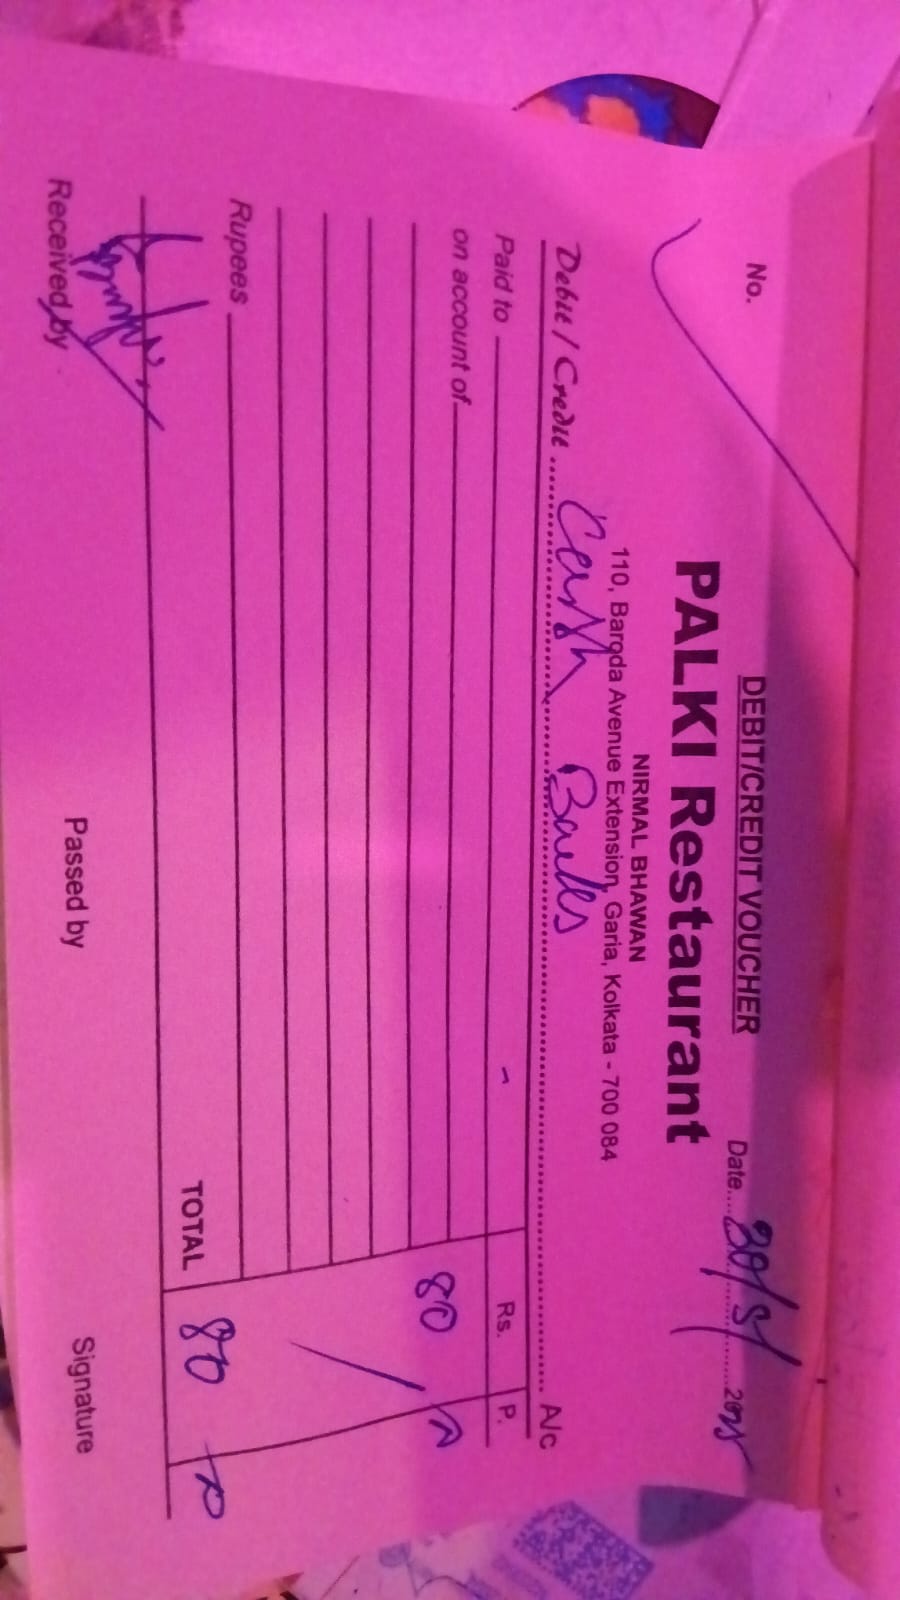 DEBIT/CREDIT VOUCHER
No.
Date 30/5/ 2025
PALKI Restaurant
NIRMAL BHAWAN
110, Baroda Avenue Extension, Garia, Kolkata - 700 084
Debit / Credit A/c
Paid to Rs. P.
on account of
80
Rupees
TOTAL 80
Received by Passed by Signature